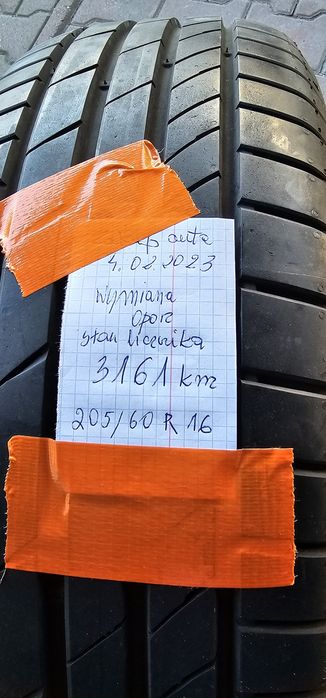 auta
4.02.2023
Wymiana
opon
stan licznika
3161 km
205/60 R 16